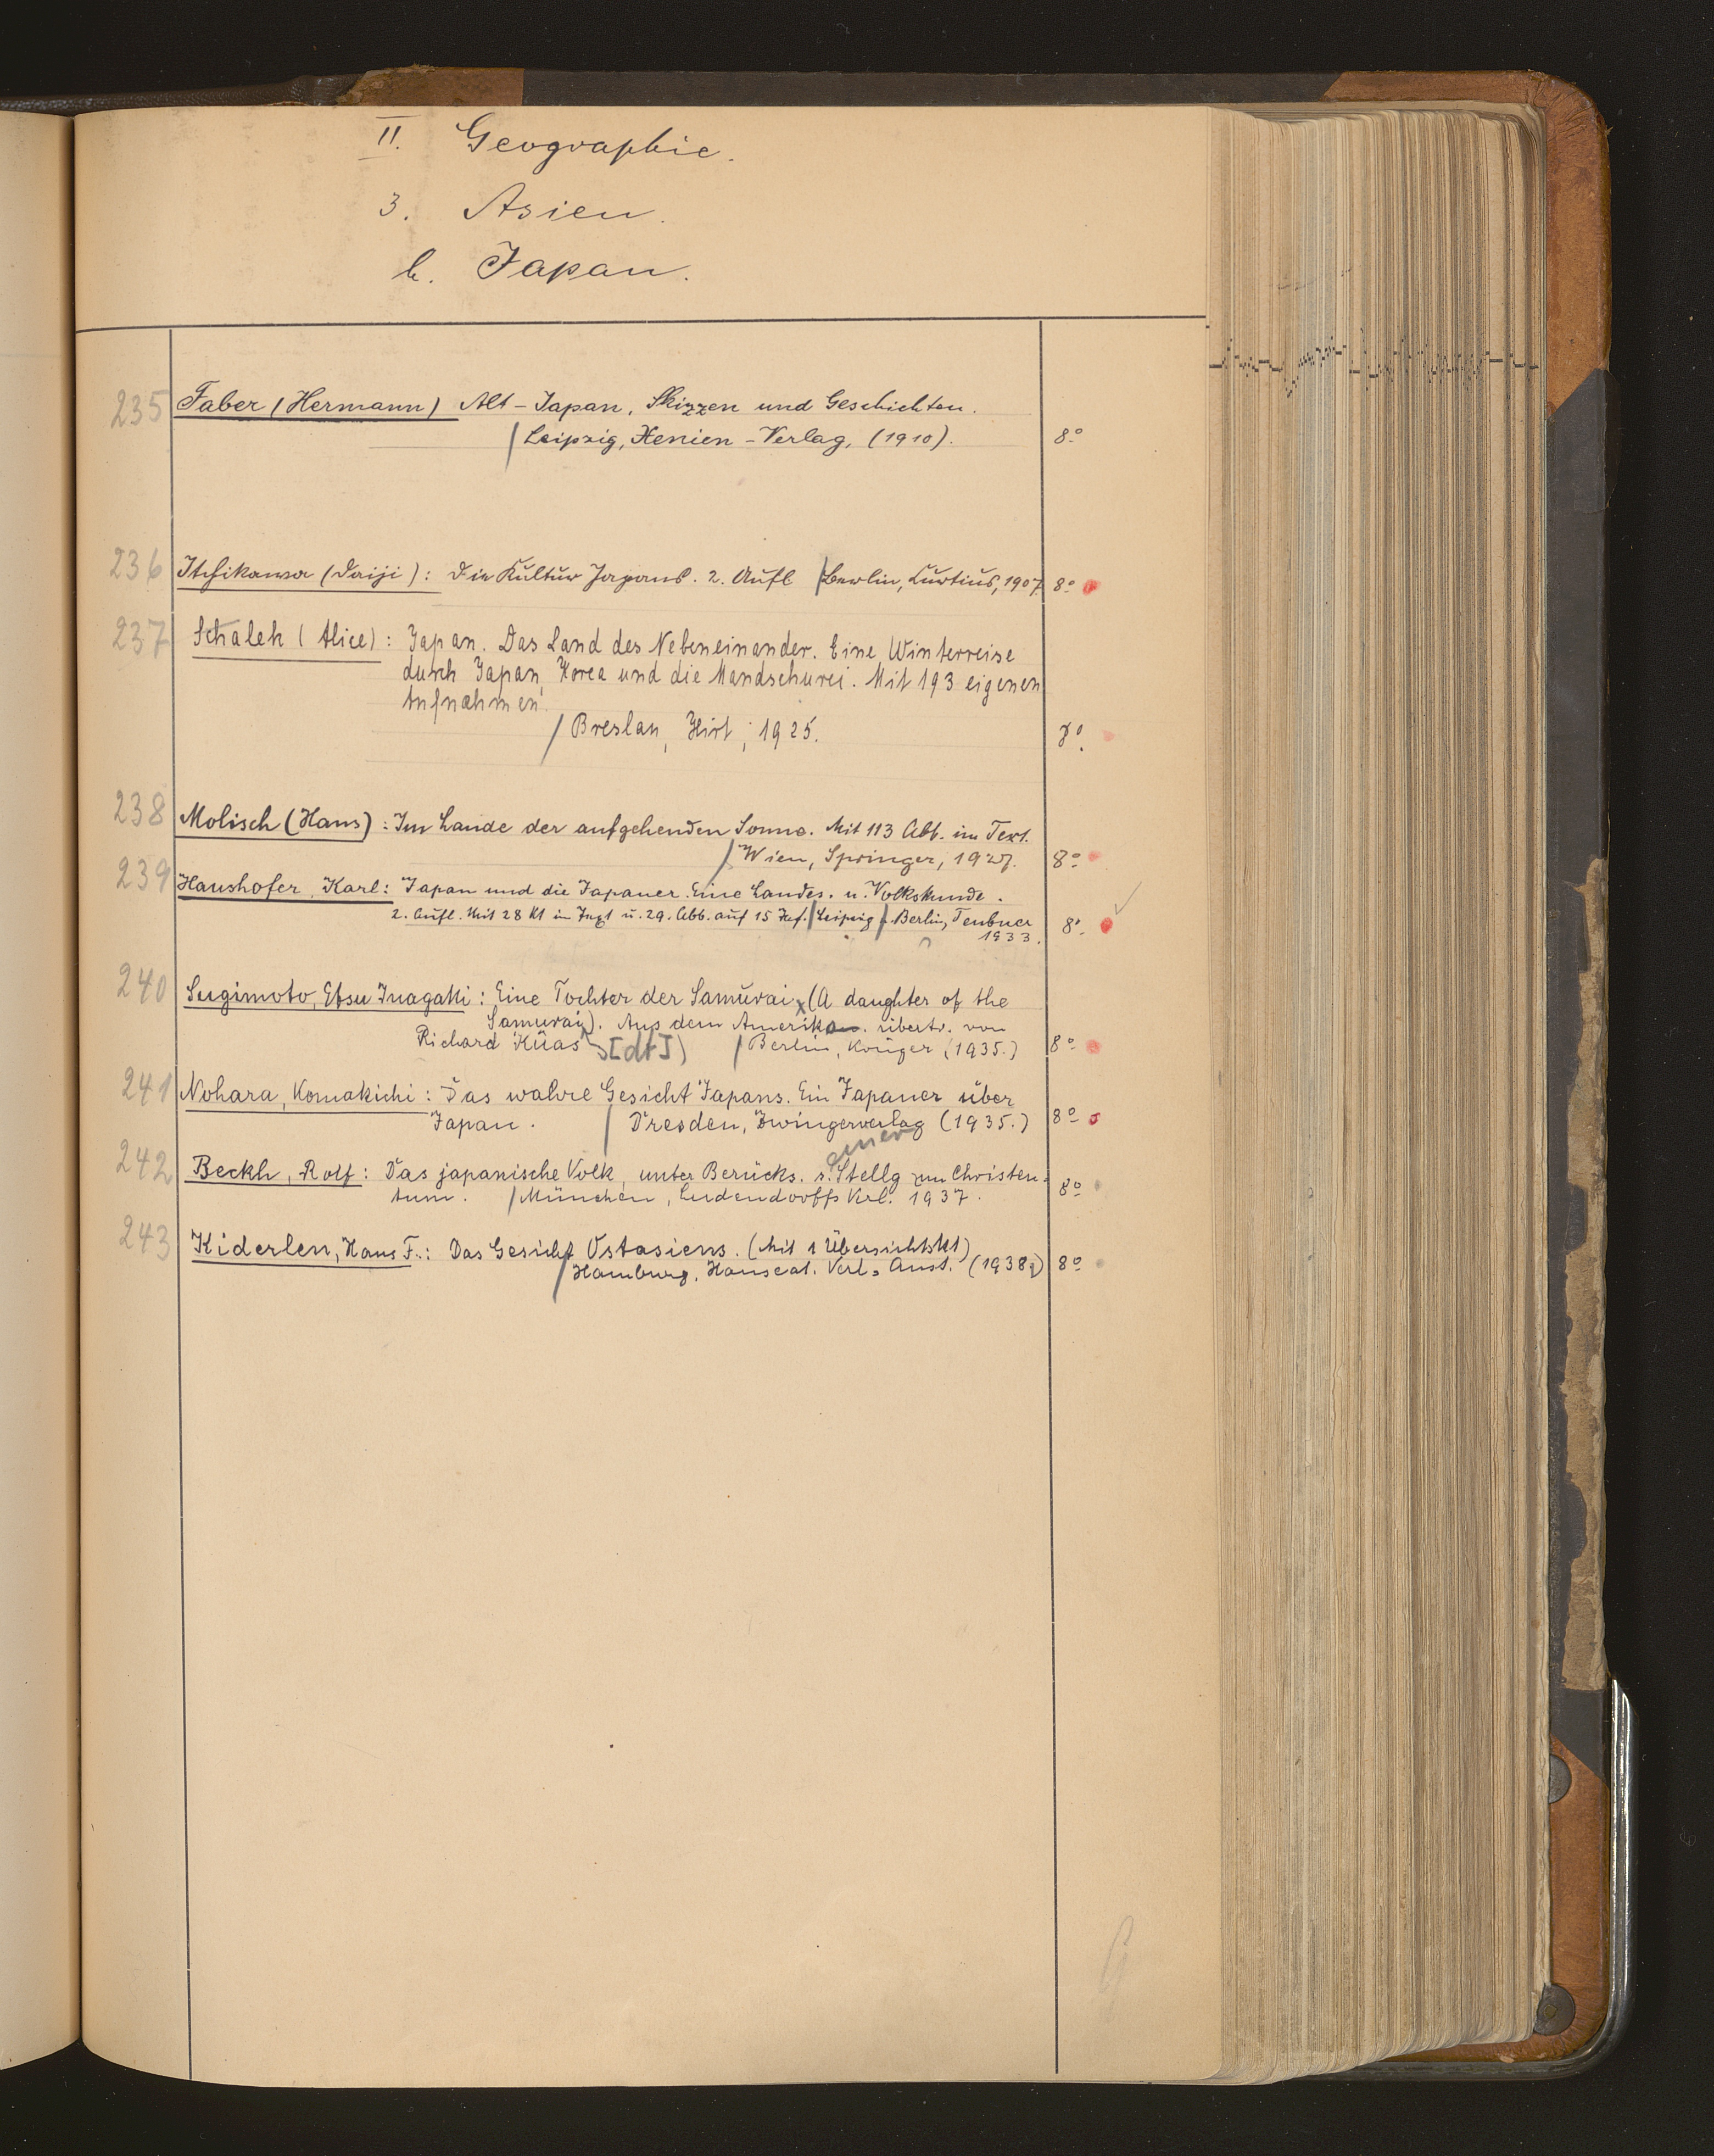 II. Geographie.
3. Asien.
b. Japan.
235 Faber (Hermann) Alt-Japan, Skizzen und Geschichten.
/Leipzig, Xenien-Verlag, (1910). 8º
236 Itchikawa (Daiji): Die Kultur Japans. 2. Aufl /Berlin, Curtius, 1907. 8º
237 Schalek (Alice): Japan. Das Land des Nebeneinander. Eine Winterreise
durch Japan, Korea und die Mandschurei. Mit 193 eigenen
Aufnahmen.
/Breslau, Hirt, 1925. 8º.
238 Molisch (Hans): Im Lande der aufgehenden Sonne. Mit 113 Abb. im Text.
/Wien, Springer, 1927. 8º
239 Haushofer, Karl: Japan und die Japaner. Eine Landes- u. Volkskunde.
2. Aufl. Mit 28 Kt in Text u. 29. Abb. auf 15 Taf. /Leipzig /. Berlin, Teubner
1933. 8º.
240 Sugimoto, Etsu Inagaki: Eine Tochter der Samurai (A daughter of the
Samurai). Aus dem Amerikan. übertr. von
Richard Küas [dt]) /Berlin, Krüger (1935.) 8º
241 Nohara, Komakichi: Das wahre Gesicht Japans. Ein Japaner über
Japan. / Dresden, Zwingerverlag (1935.) 8º
242 Beckh, Rolf: Das japanische Volk, unter Berücks. s. Stellg zum Christen-
tum. /München, Ludendorffs Verl. 1937. 8º
243 Kiderlen, Hans F.: Das Gesicht Ostasiens. (Mit 1 Übersichtskt)
/Hamburg, Hanseat. Verl. Anst. (1938) 8º